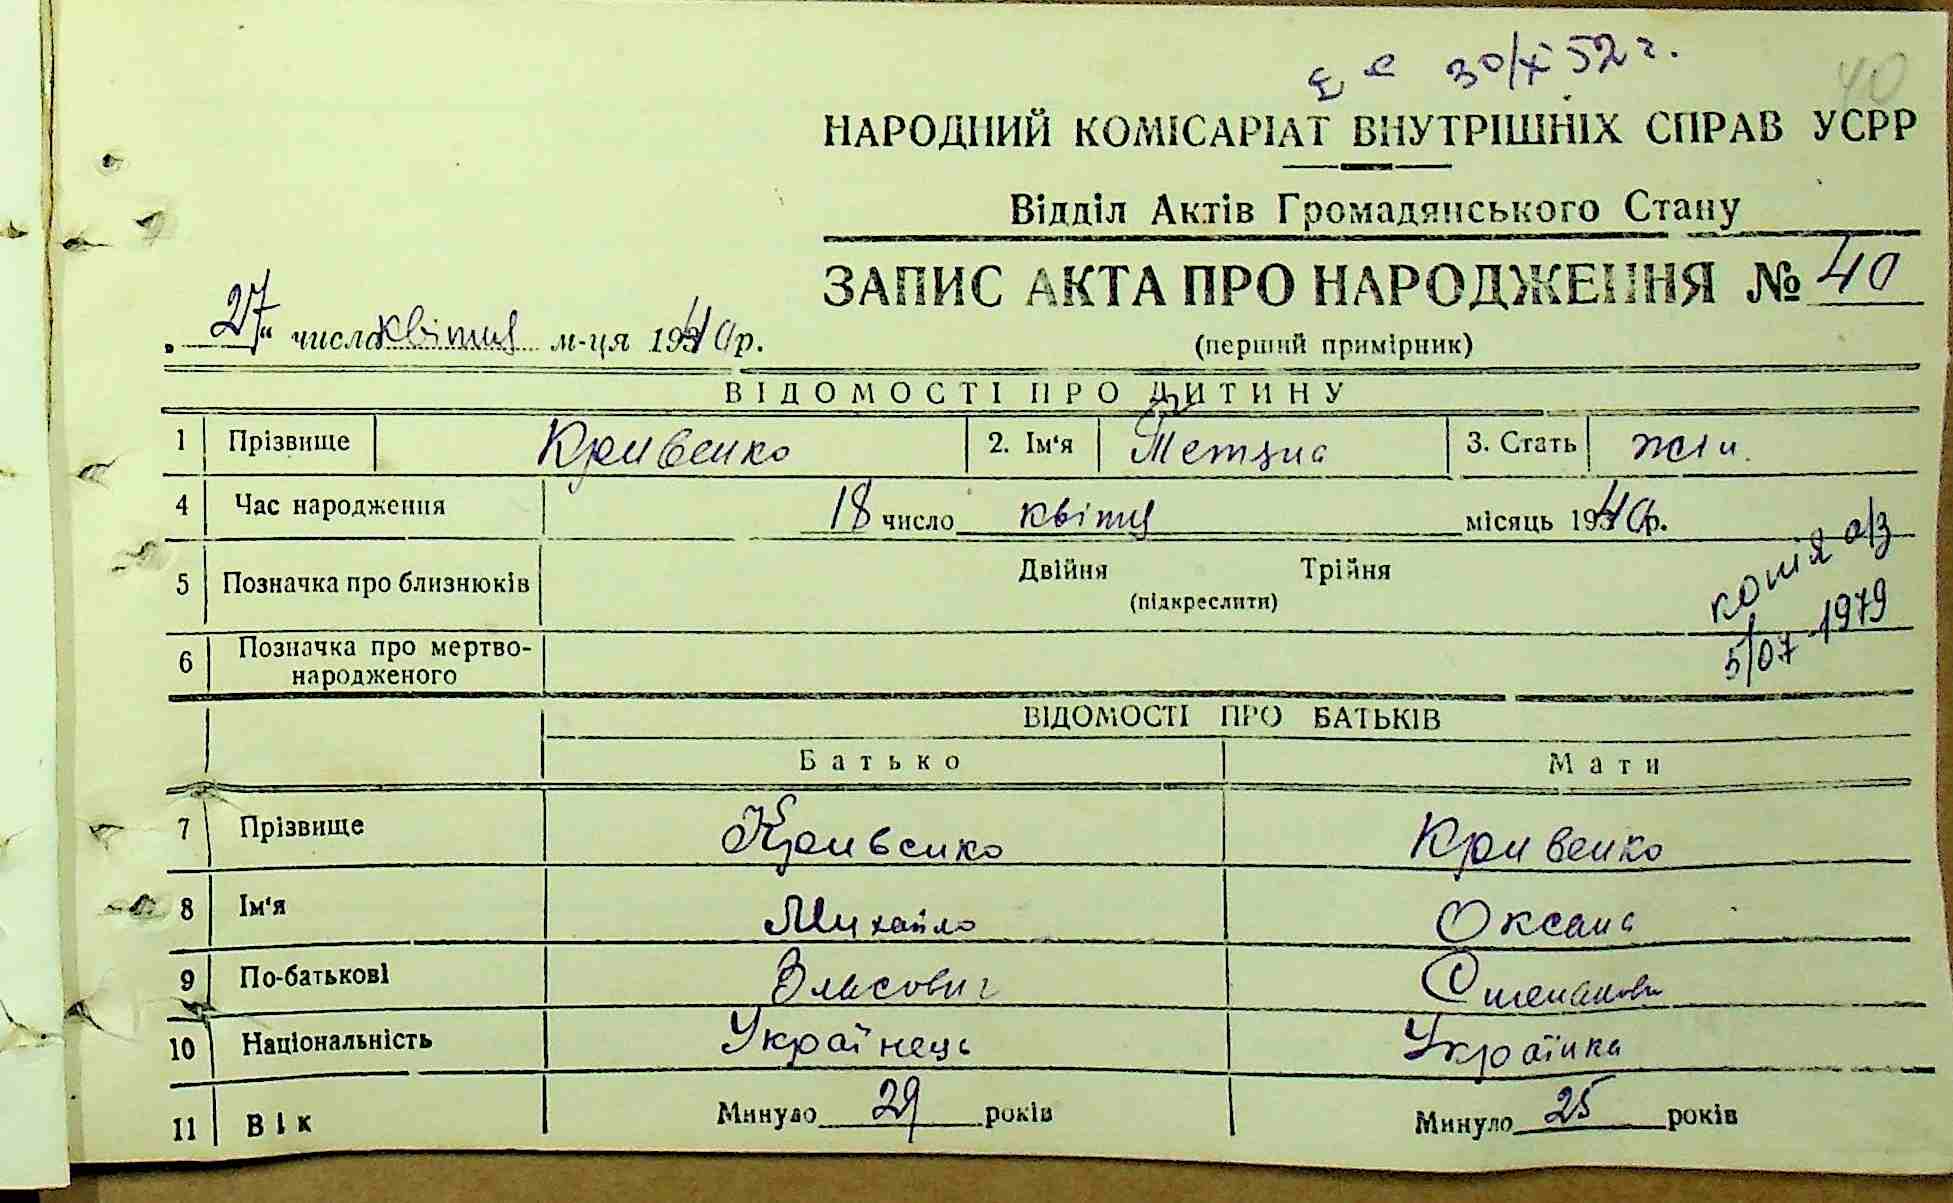 30/X 52 г.
40
НАРОДНИЙ КОМІСАРІАТ ВНУТРІШНІХ СПРАВ УСРР
Відділ Актів Громадянського Стану
ЗАПИС АКТА ПРО НАРОДЖЕННЯ № 40
„27“ число квітня м-ця 1940 р.
(перший примірник)
ВІДОМОСТІ ПРО ДИТИНУ
1 Прізвище Кривенко 2. Ім'я Тетяна 3. Стать жін.
4 Час народження 18 число квітня місяць 1940 р.
5 Позначка про близнюків Двійня Трійня
(підкреслити)
копія а/з
5/07-1979
6 Позначка про мертво-
народженого
ВІДОМОСТІ ПРО БАТЬКІВ
Батько Мати
7 Прізвище Кривенко Кривенко
8 Ім'я Михайло Оксана
9 По-батькові Власович Степанови
10 Національність Українець Українка
11 Вік Минуло 29 років Минуло 25 років